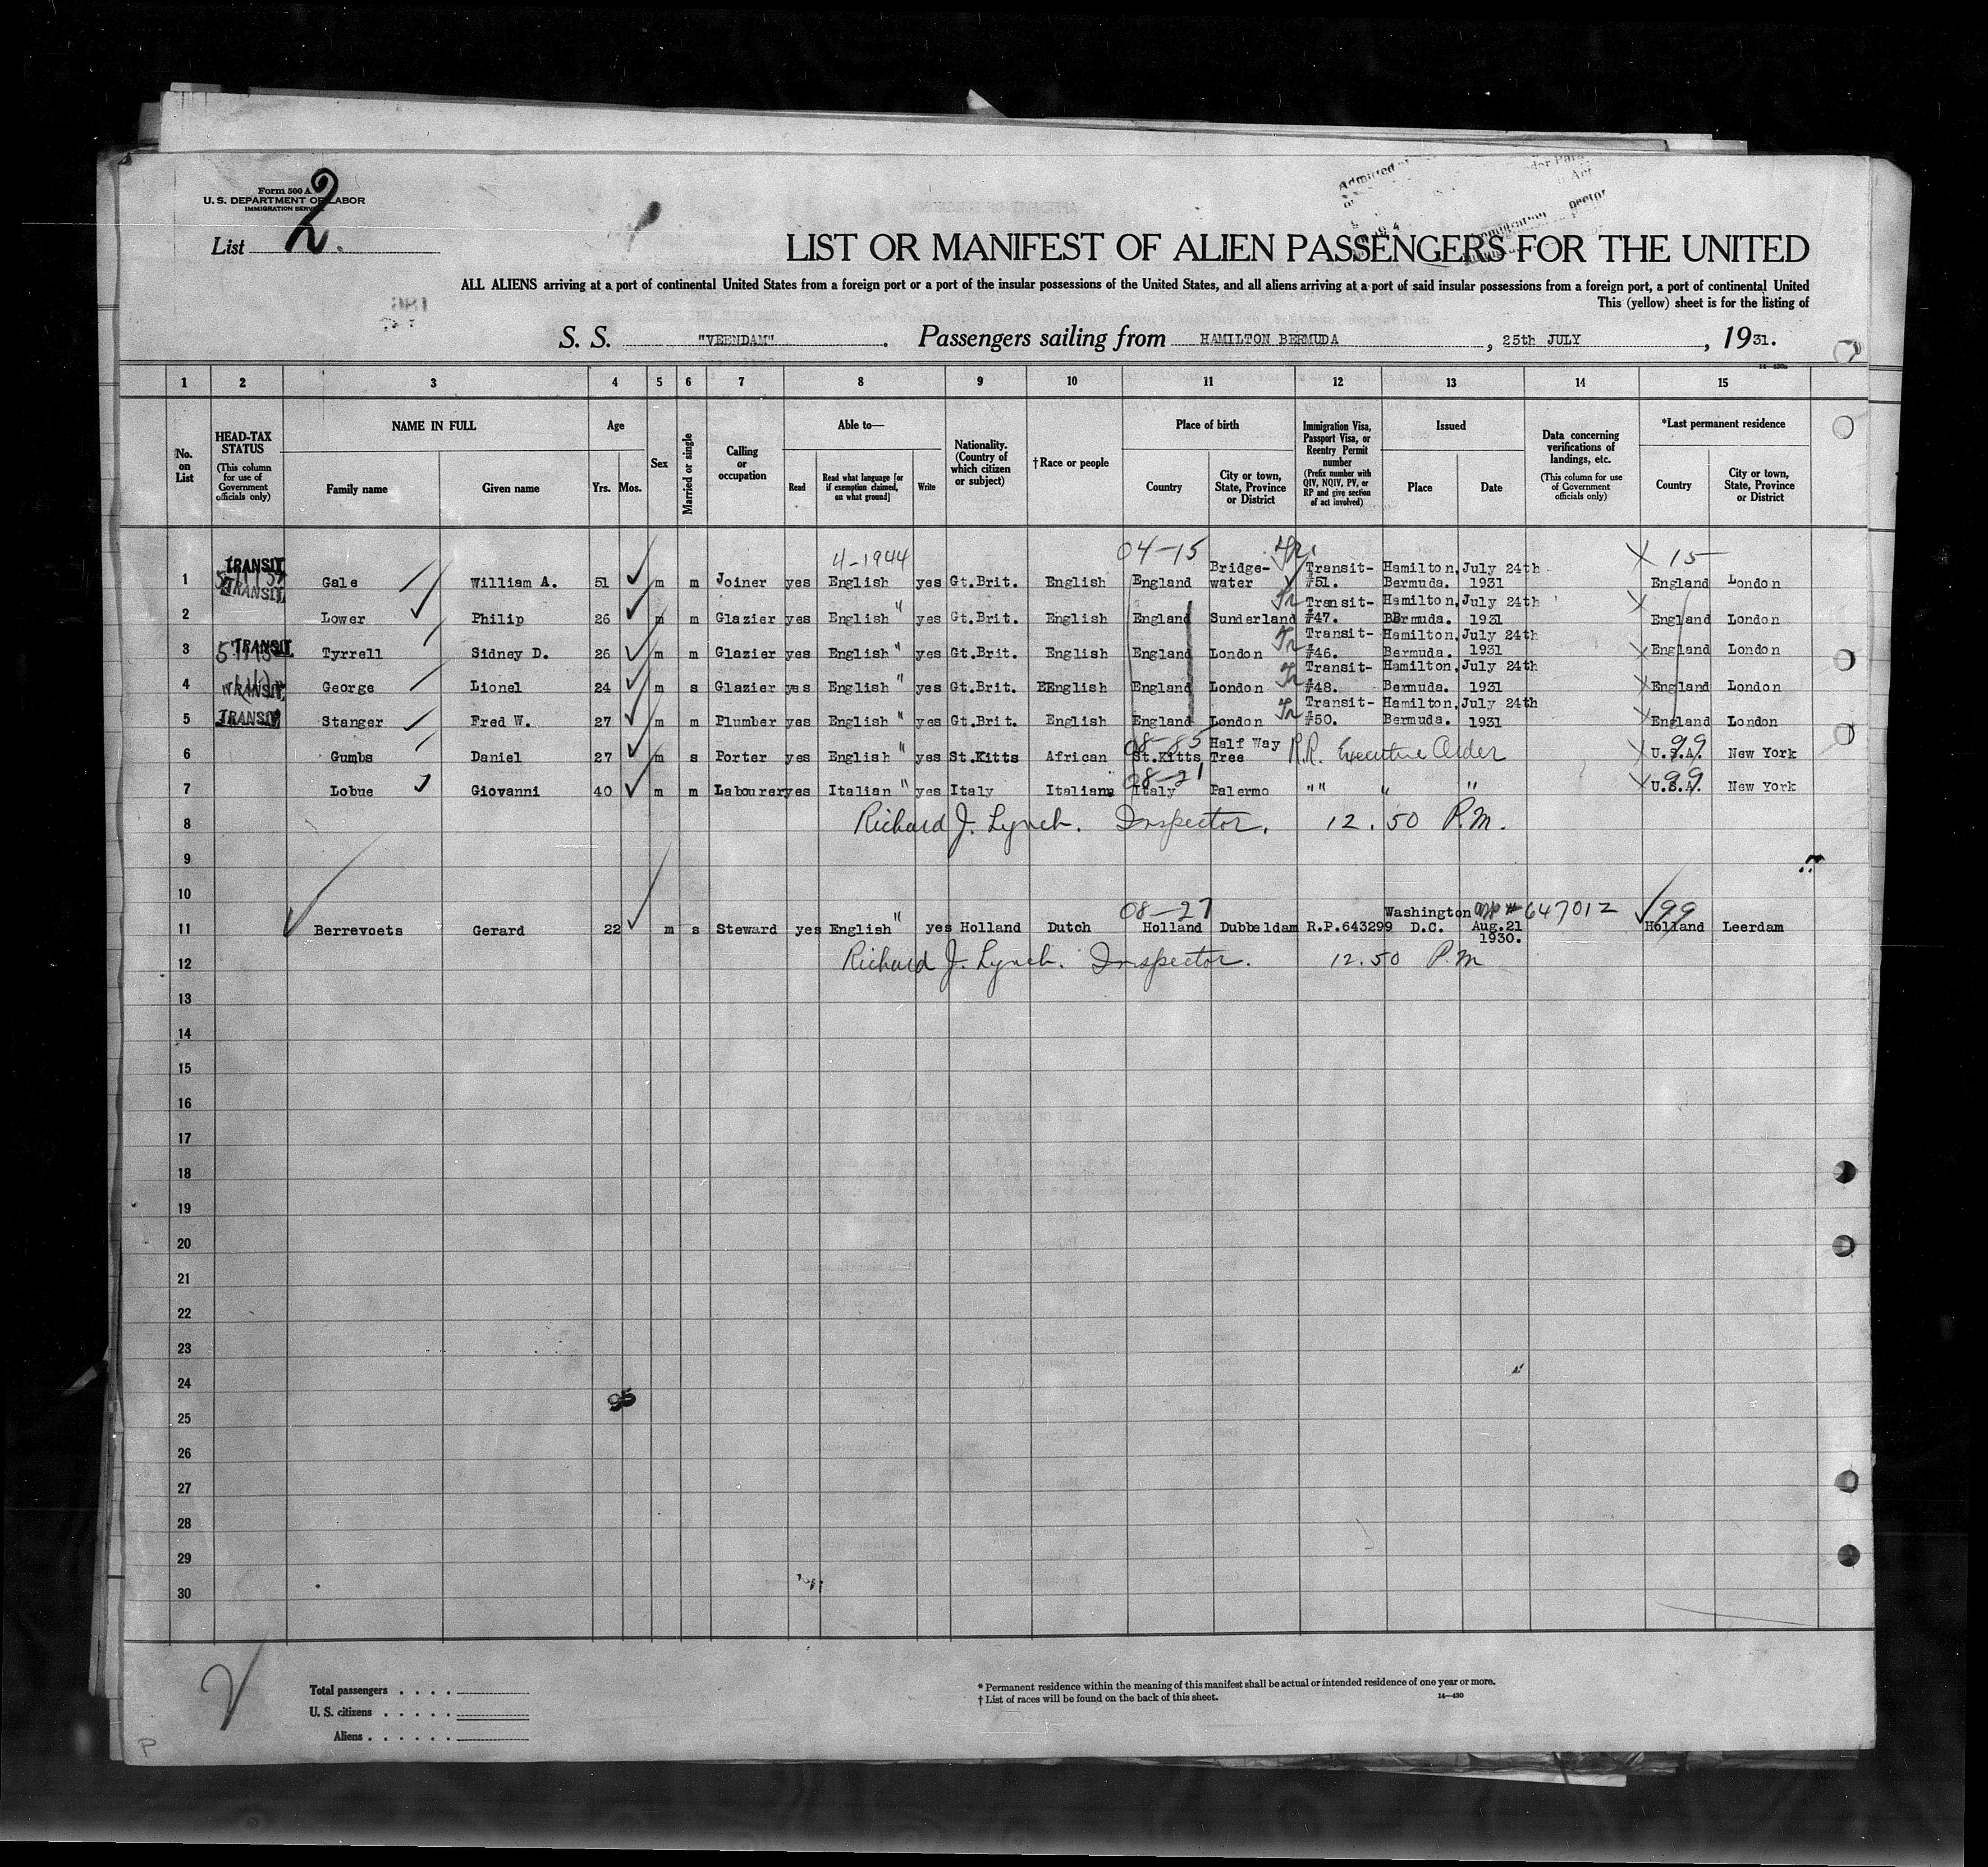 Form 500 A
U. S. DEPARTMENT OF LABOR
IMMIGRATION SERVICE
List 2.
LIST OR MANIFEST OF ALIEN PASSENGERS FOR THE UNITED
ALL ALIENS arriving at a port of continental United States from a foreign port or a port of the insular possessions of the United States, and all aliens arriving at a port of said insular possessions from a foreign port, a port of continental United
This (yellow) sheet is for the listing of
S. S. "VEENDAM". Passengers sailing from HAMILTON BERMUDA, 25th JULY, 1931.
1 2 3 4 5 6 7 8 9 10 11 12 13 14 15
No. on List
HEAD-TAX STATUS (This column for use of Government officials only)
NAME IN FULL Family name Given name
Age Yrs. Mos.
Sex
Married or single
Calling or occupation
Able to— Read Read what language [or if exemption claimed, on what ground] Write
Nationality. (Country of which citizen or subject)
†Race or people
Place of birth Country City or town, State, Province or District
Immigration Visa, Passport Visa, or Reentry Permit number (Prefix number with QIV, NQIV, PV, or RP and give section of act involved)
Issued Place Date
Data concerning verifications of landings, etc. (This column for use of Government officials only)
*Last permanent residence Country City or town, State, Province or District
4-1944 04-15 Tr. X 15
1 TRANSIT TRANSIT Gale William A. 51 m m Joiner yes English yes Gt.Brit. English England Bridge-water Transit-#51. Hamilton, Bermuda. July 24th 1931 England London
2 Lower Philip 26 m m Glazier yes English " yes Gt.Brit. English England Sunderland Tr Transit-#47. Hamilton, BBrmuda. July 24th 1931 X England London
3 TRANSIT Tyrrell Sidney D. 26 m m Glazier yes English " yes Gt.Brit. English England London Tr Transit-#46. Hamilton, Bermuda. July 24th 1931 X England London
4 TRANSIT George Lionel 24 m s Glazier yes English " yes Gt.Brit. EEnglish England London Tr Transit-#48. Hamilton, Bermuda. July 24th 1931 X England London
5 TRANSIT Stanger Fred W. 27 m m Plumber yes English " yes Gt.Brit. English England London Tr Transit-#50. Hamilton, Bermuda. July 24th 1931 X England London
6 Gumbs Daniel 27 m s Porter yes English " yes St.Kitts African 08-85 St.Kitts Half Way Tree R.R. Executive Order X 99 U.S.A. New York
7 Lobue Giovanni 40 m m Labourer yes Italian " yes Italy Italian 08-21 Italy Palermo "" " " X 99 U.S.A. New York
8 Richard J. Lynch. Inspector. 12.50 P.M.
9
10
11 Berrevoets Gerard 22 m s Steward yes English " yes Holland Dutch 08-27 Holland Dubbeldam R.P.643299 Washington D.C. Aug.21 1930. # 647012 99 Holland Leerdam
12 Richard J. Lynch. Inspector. 12.50 P.M
13
14
15
16
17
18
19
20
21
22
23
24
95
25
26
27
28
29
30
Total passengers
U. S. citizens
Aliens
* Permanent residence within the meaning of this manifest shall be actual or intended residence of one year or more.
† List of races will be found on the back of this sheet. 14—430
P